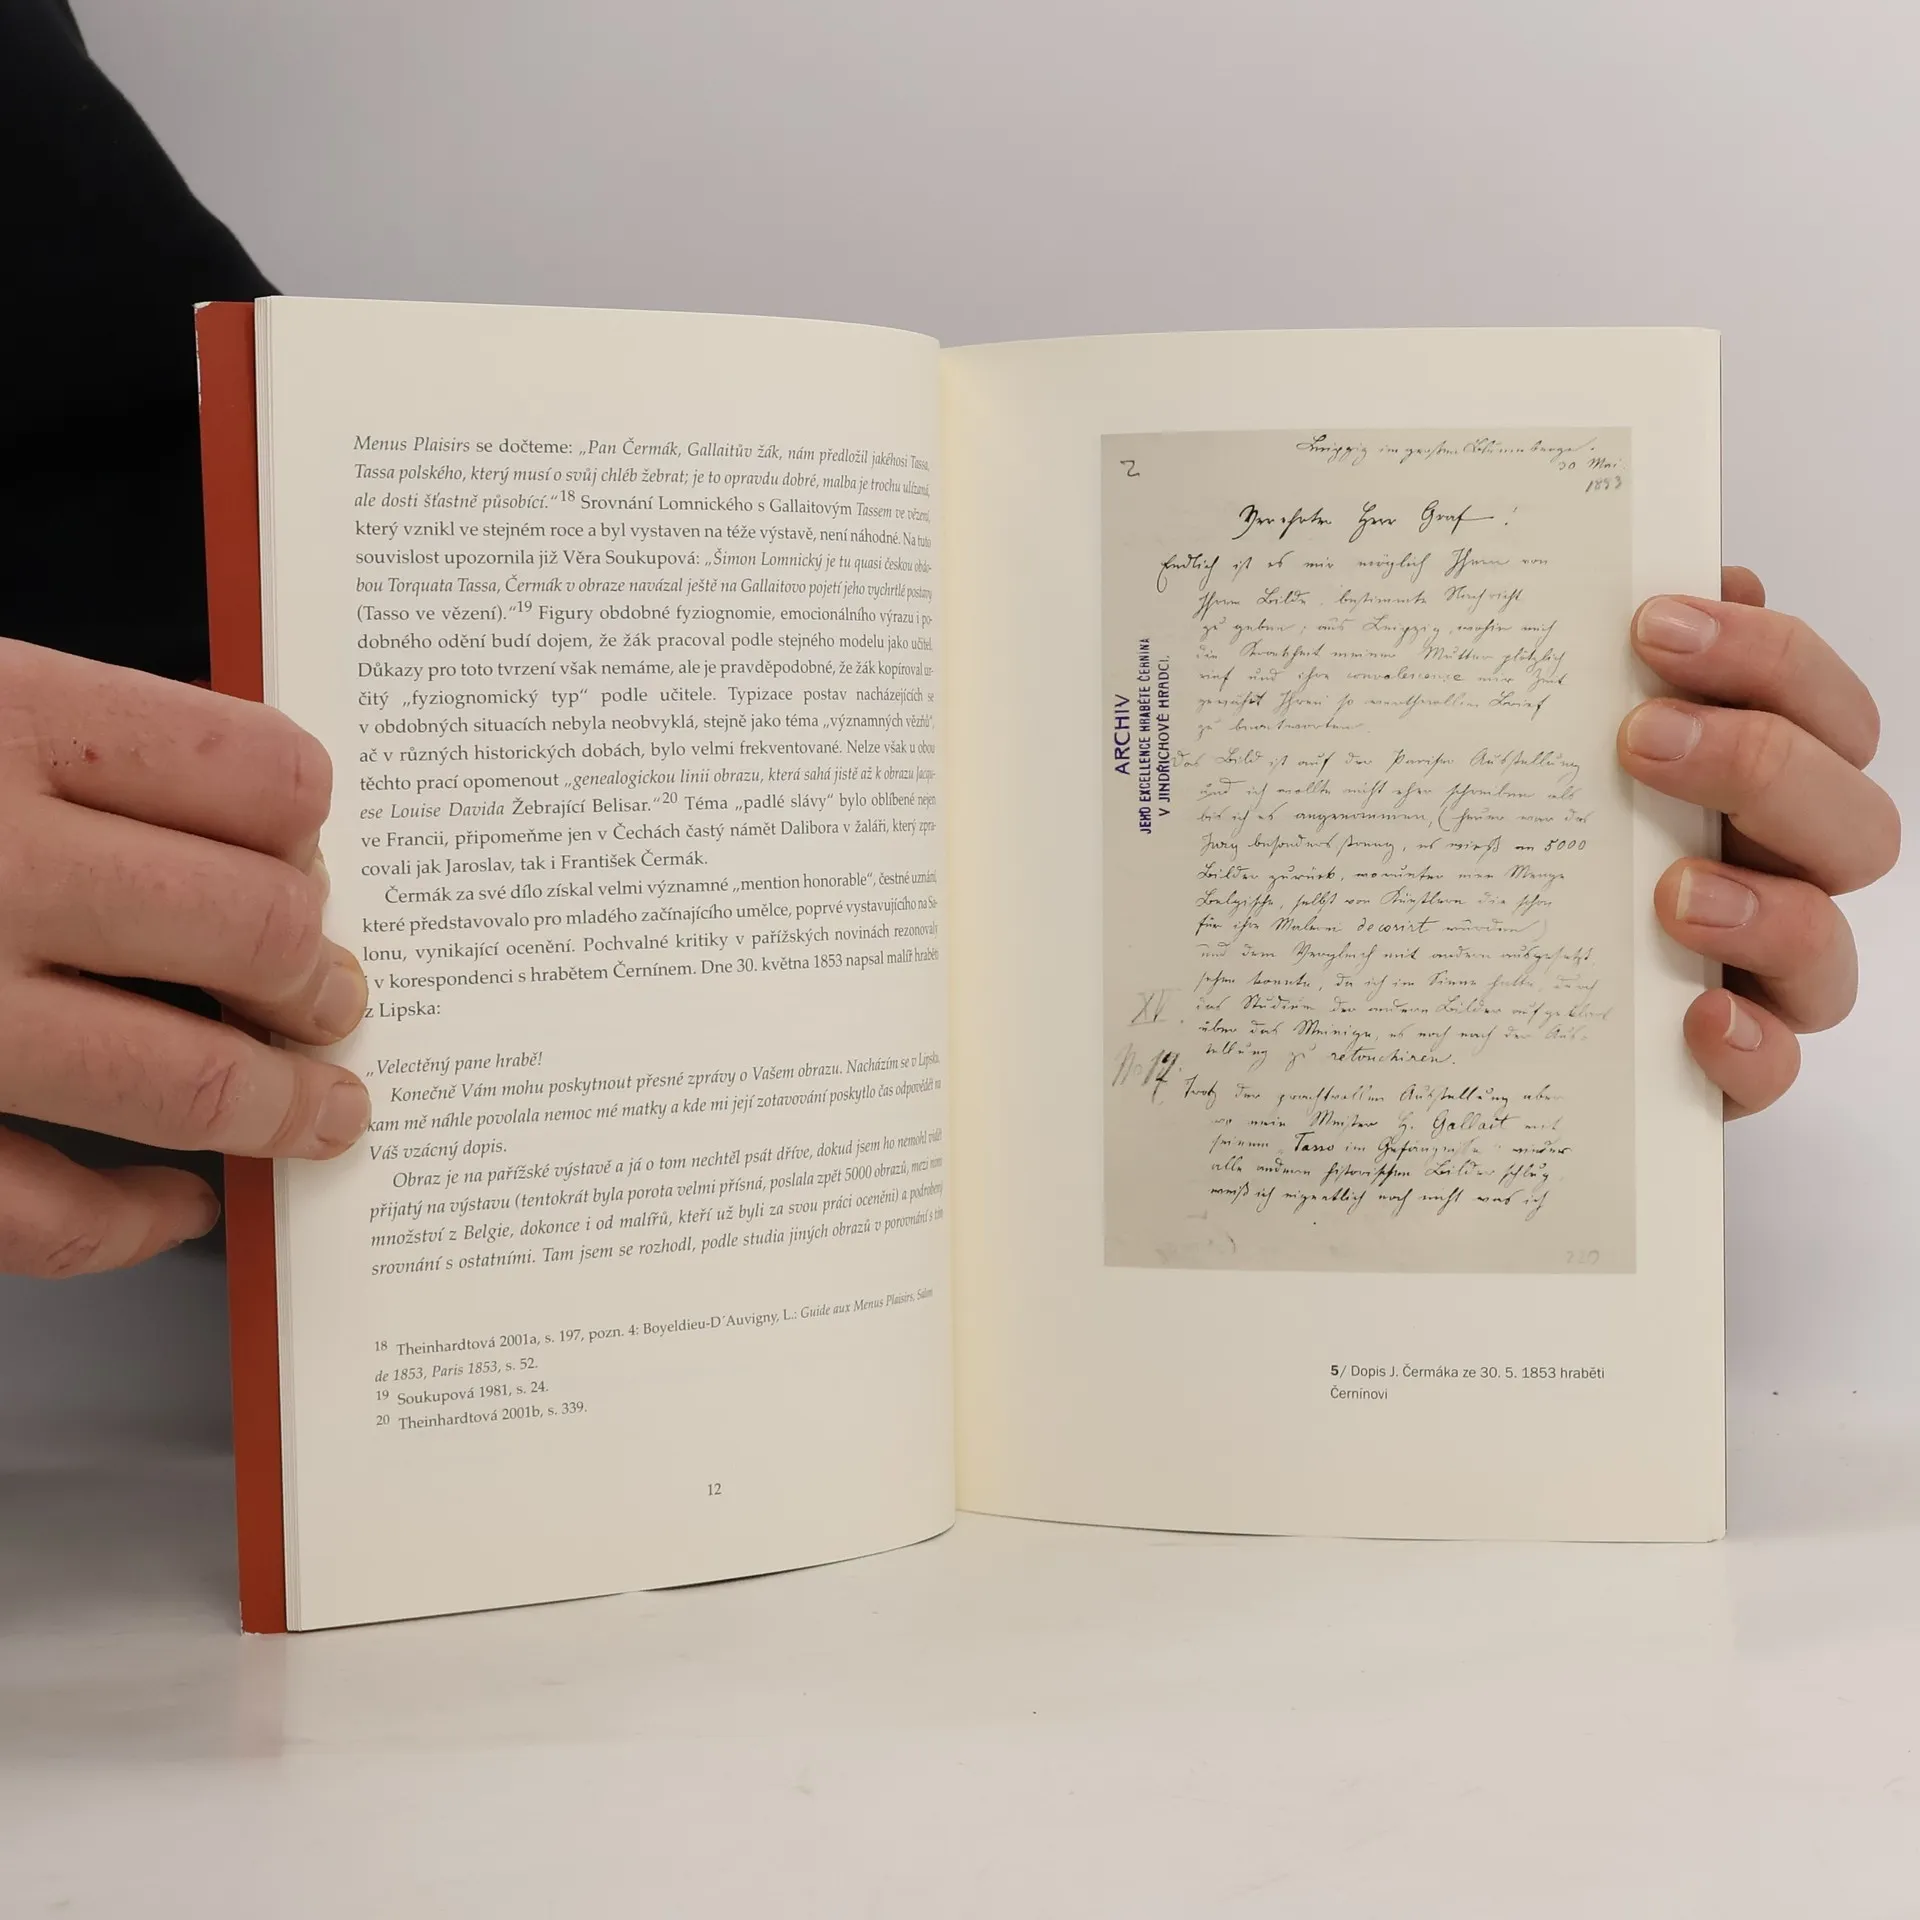 Menus Plaisirs se dočteme: „Pan Čermák, Gallaitův žák, nám předložil jakéhosi Tassa,
Tassa polského, který musí o svůj chléb žebrat; je to opravdu dobré, malba je trochu ulízaná,
ale dosti šťastně působící.“18 Srovnání Lomnického s Gallaitovým Tassem ve vězení,
který vznikl ve stejném roce a byl vystaven na téže výstavě, není náhodné. Na tuto
souvislost upozornila již Věra Soukupová: „Šimon Lomnický je tu quasi českou obdo-
bou Torquata Tassa, Čermák v obraze navázal ještě na Gallaitovo pojetí jeho vychrtlé postavy
(Tasso ve vězení).“19 Figury obdobné fyziognomie, emocionálního výrazu i po-
dobného odění budí dojem, že žák pracoval podle stejného modelu jako učitel.
Důkazy pro toto tvrzení však nemáme, ale je pravděpodobné, že žák kopíroval ur-
čitý „fyziognomický typ“ podle učitele. Typizace postav nacházejících se
v obdobných situacích nebyla neobvyklá, stejně jako téma „významných vězňů“,
ač v různých historických dobách, bylo velmi frekventované. Nelze však u obou
těchto prací opomenout „genealogickou linii obrazu, která sahá jistě až k obrazu Jacqu-
ese Louise Davida Žebrající Belisar.“20 Téma „padlé slávy“ bylo oblíbené nejen
ve Francii, připomeňme jen v Čechách častý námět Dalibora v žaláři, který zpra-
covali jak Jaroslav, tak i František Čermák.
Čermák za své dílo získal velmi významné „mention honorable“, čestné uznání,
které představovalo pro mladého začínajícího umělce, poprvé vystavujícího na Sa-
lonu, vynikající ocenění. Pochvalné kritiky v pařížských novinách rezonovaly
i v korespondenci s hrabětem Černínem. Dne 30. května 1853 napsal malíř hraběti
z Lipska:
„Velectěný pane hrabě!
Konečně Vám mohu poskytnout přesné zprávy o Vašem obrazu. Nacházím se v Lipsku,
kam mě náhle povolala nemoc mé matky a kde mi její zotavování poskytlo čas odpovědět na
Váš vzácný dopis.
Obraz je na pařížské výstavě a já o tom nechtěl psát dříve, dokud jsem ho nemohl vidět
přijatý na výstavu (tentokrát byla porota velmi přísná, poslala zpět 5000 obrazů, mezi nimi
množství z Belgie, dokonce i od malířů, kteří už byli za svou práci oceněni) a podrobený
srovnání s ostatními. Tam jsem se rozhodl, podle studia jiných obrazů v porovnání s tím
18 Theinhardtová 2001a, s. 197, pozn. 4: Boyeldieu-D´Auvigny, L.: Guide aux Menus Plaisirs, Salon
de 1853, Paris 1853, s. 52.
19 Soukupová 1981, s. 24.
20 Theinhardtová 2001b, s. 339.
12
2
Leipzig im großen Blumenberge.
30 Mai
1853
Verehrter Herr Graf!
Endlich ist es mir möglich Ihnen von
Ihrem Bilde bestimmte Nachricht
zu geben; aus Leipzig, wohin mich
die Krankheit meiner Mutter plötzlich
rief und ihre convalescence mir Zeit
gewährt Ihren so werthvollen Brief
zu beantworten.
Das Bild ist auf der Pariser Ausstellung
und ich wollte nicht eher schreiben als
bis ich es angenommen, (heuer war das
Jury besonders streng, es wieß an 5000
Bilder zurück, worunter eine Menge
Belgische, selbst von Künstlern die schon
für ihre Malerei decorirt wurden)
und dem Vergleich mit andern ausgesetzt
sehen konnte, da ich im Sinne hatte, durch
das Studium der andern Bilder aufgeklärt
über das Meinige, es noch nach der Aus-
stellung zu retouchiren.
Trotz der prachtvollen Ausstellung aber
wo mein Meister H. Gallait mit
seinem „Tasso im Gefängnisse“ wieder
alle andern historischen Bilder schlug,
weiß ich eigentlich noch nicht was ich
XV.
No 17.
220
ARCHIV
JEHO EXCELLENCE HRABĚTE ČERNÍNA
V JINDŘICHOVĚ HRADCI.
5/ Dopis J. Čermáka ze 30. 5. 1853 hraběti
Černínovi